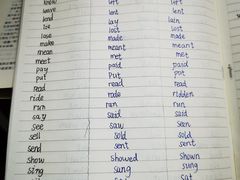 know
leave left left
lend lent lent
lie lay lain
lose lost lost
make made made
mean meant meant
meet met met
pay paid paid
put put put
read read read
ride rode ridden
run run run
say said said
see saw seen
sell sold sold
send sent sent
show showed shown
sing sang sung
sat